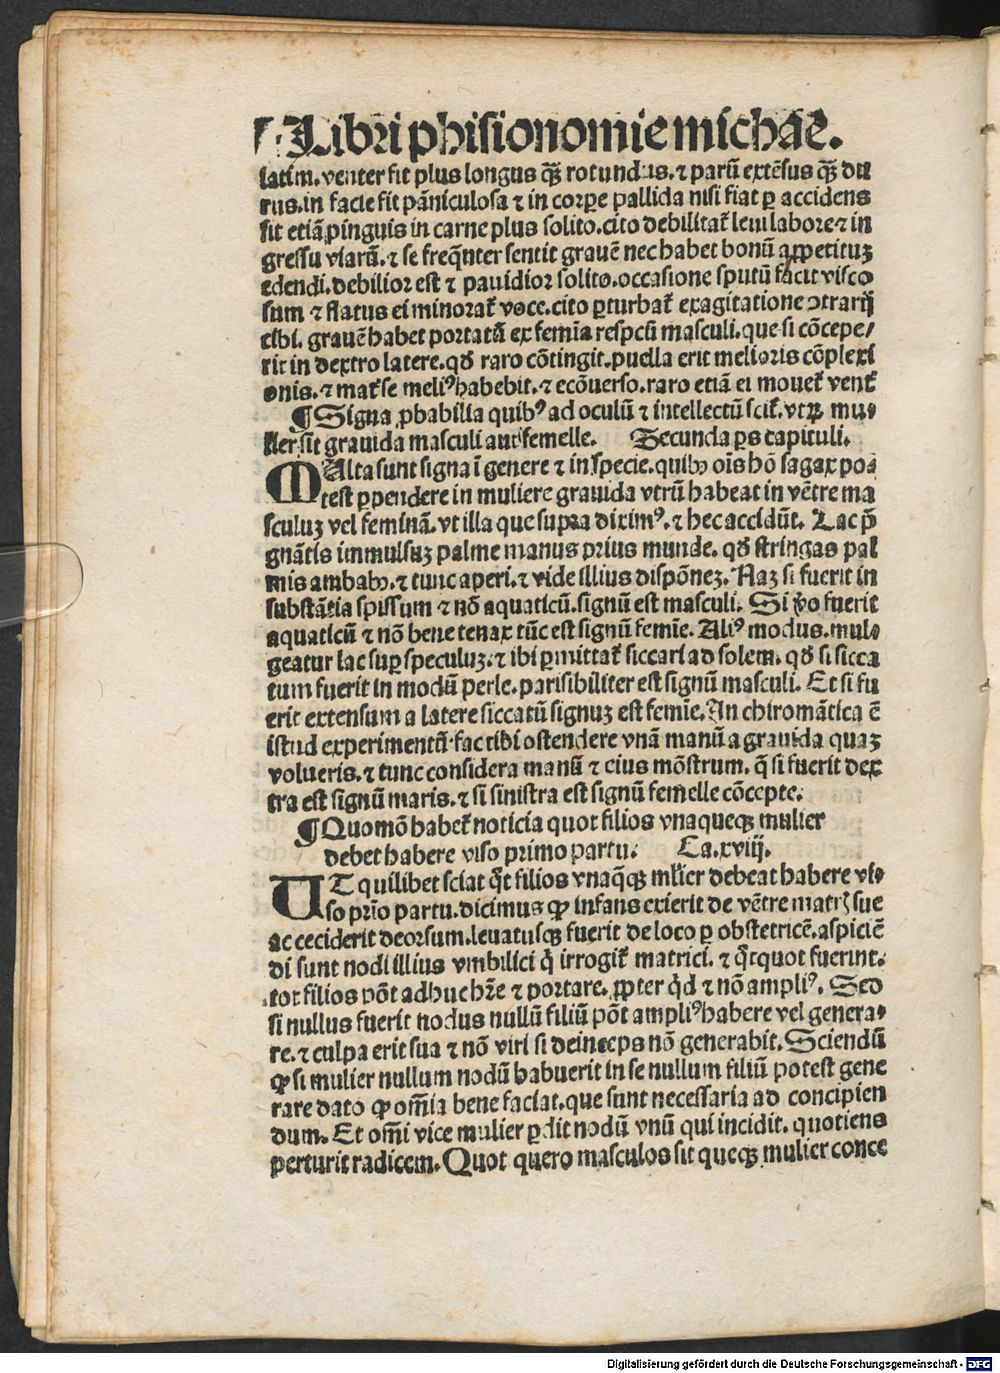 Libri phisionomie michae.
latim. venter fit plus longus q̃ꝫ rotundus. ⁊ parũ extẽsus q̃ꝫ du
rus. in facie fit pãniculosa ⁊ in corpe pallida nisi fiat ꝑ accidens
fit etiã pinguis in carne plus solito. cito debilitat̃ leui labore ⁊ in
gressu viarũ. ⁊ se freq̃nter sentit grauẽ nec habet bonũ appetituꝫ
edendi. debilior est ⁊ pauidior solito. occasione sputũ facit visco
sum ⁊ flatus ei minorat̃ voce. cito ꝑturbat̃ exagitatione ↄtrarij
cibi. grauẽ habet portatũ ex femĩa respcũ masculi. que si cõcepe/
rit in dextro latere. qđ raro cõtingit. puella erit melioris cõplexi
onis. ⁊ mat̃ se meliꝰ habebit. ⁊ ecõuerso. raro etiã ei mouet̃ vent̃
¶ Signa ꝓbabilia quibꝰ ad oculũ ⁊ intellectũ scit̃. vtꝝ mu-
lier sit grauida masculi aut femelle. Secunda ps capituli.
MUlta sunt signa ĩ genere ⁊ in specie. quibꝫ oĩs hõ sagax po-
test ꝑpendere in muliere grauida vtrũ habeat in vẽtre ma
sculuꝫ vel feminã. vt illa que supra diximꝰ. ⁊ hec accidũt. Lac p̃
gnãtis immulsuꝫ palme manus prius munde. qđ stringas pal
mis ambabꝫ. ⁊ tunc aperi. ⁊ vide illius dispõneꝫ. Naꝫ si fuerit in
substãtia spissum ⁊ nõ aquaticũ. signũ est masculi. Si ṽo fuerit
aquaticũ ⁊ nõ bene tenax tũc est signũ femĩe. Aliꝰ modus. mul-
geatur lac suꝑ speculuꝫ. ⁊ ibi ꝑmittat̃ siccari ad solem. qđ si sicca
tum fuerit in modũ perle. parisibiliter est signũ masculi. Et si fu
erit extensum a latere siccatũ signuꝫ est femĩe. In chiromãtica ẽ
istud experimentũ. fac tibi ostendere vnã manũ a grauida quaꝫ
volueris. ⁊ tunc considera manũ ⁊ eius mõstrum. q̃ si fuerit dex
tra est signũ maris. ⁊ si sinistra est signũ femelle cõcepte.
¶ Quomõ habet̃ noticia quot filios vnaqueqꝫ mulier
debet habere viso primo partu. Ca. xviij.
UT quilibet sciat q̃t filios vnaq̃qꝫ mlier debeat habere vi-
so prĩo partu. dicimus ꝙ infans exierit de vẽtre matrꝭ sue
ac ceciderit deorsum. leuatusqꝫ fuerit de loco ꝑ obstetricẽ. aspiciẽ
di sunt nodi illius vmbilici q̃ irrogit̃ matrici. ⁊ q̃tquot fuerint.
tot filios põt adhuc hr̃e ⁊ portare. ꝓpter qđ ⁊ nõ ampliꝰ. Sed
si nullus fuerit nodus nullũ filiũ põt ampliꝰ habere vel genera-
re. ⁊ culpa erit sua ⁊ nõ viri si deinceps nõ generabit. Sciendũ
ꝙ si mulier nullum nodũ habuerit in se nullum filiũ potest gene
rare dato ꝙ om̃ia bene faciat. que sunt necessaria ad concipien
dum. Et om̃i vice mulier ꝑdit nodũ vnũ qui incidit. quotiens
perturit radicem. Quot quero masculos sit queqꝫ mulier conce
Digitalisierung gefördert durch die Deutsche Forschungsgemeinschaft - DFG